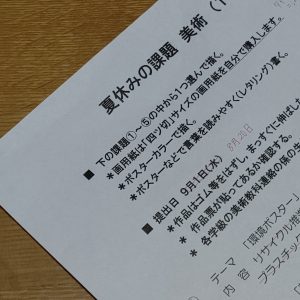 夏休みの課題 美術（1
■ 下の課題①～⑤の中から1つ選んで描く。
＊画用紙は「四ツ切」サイズの画用紙を自分で購入します。
＊ポスターカラーで描く。
＊ポスターなどで言葉を読みやすく（レタリング）書く。
■ 提出日 9月1日（水）
＊作品はゴム等をはずし、まっすぐに伸ばした
＊作品票が貼ってあるか確認する。
＊各学級の美術教科連絡の係の生
テーマ 「環境ポスター」
内 容 リサイクル
プラスチッ